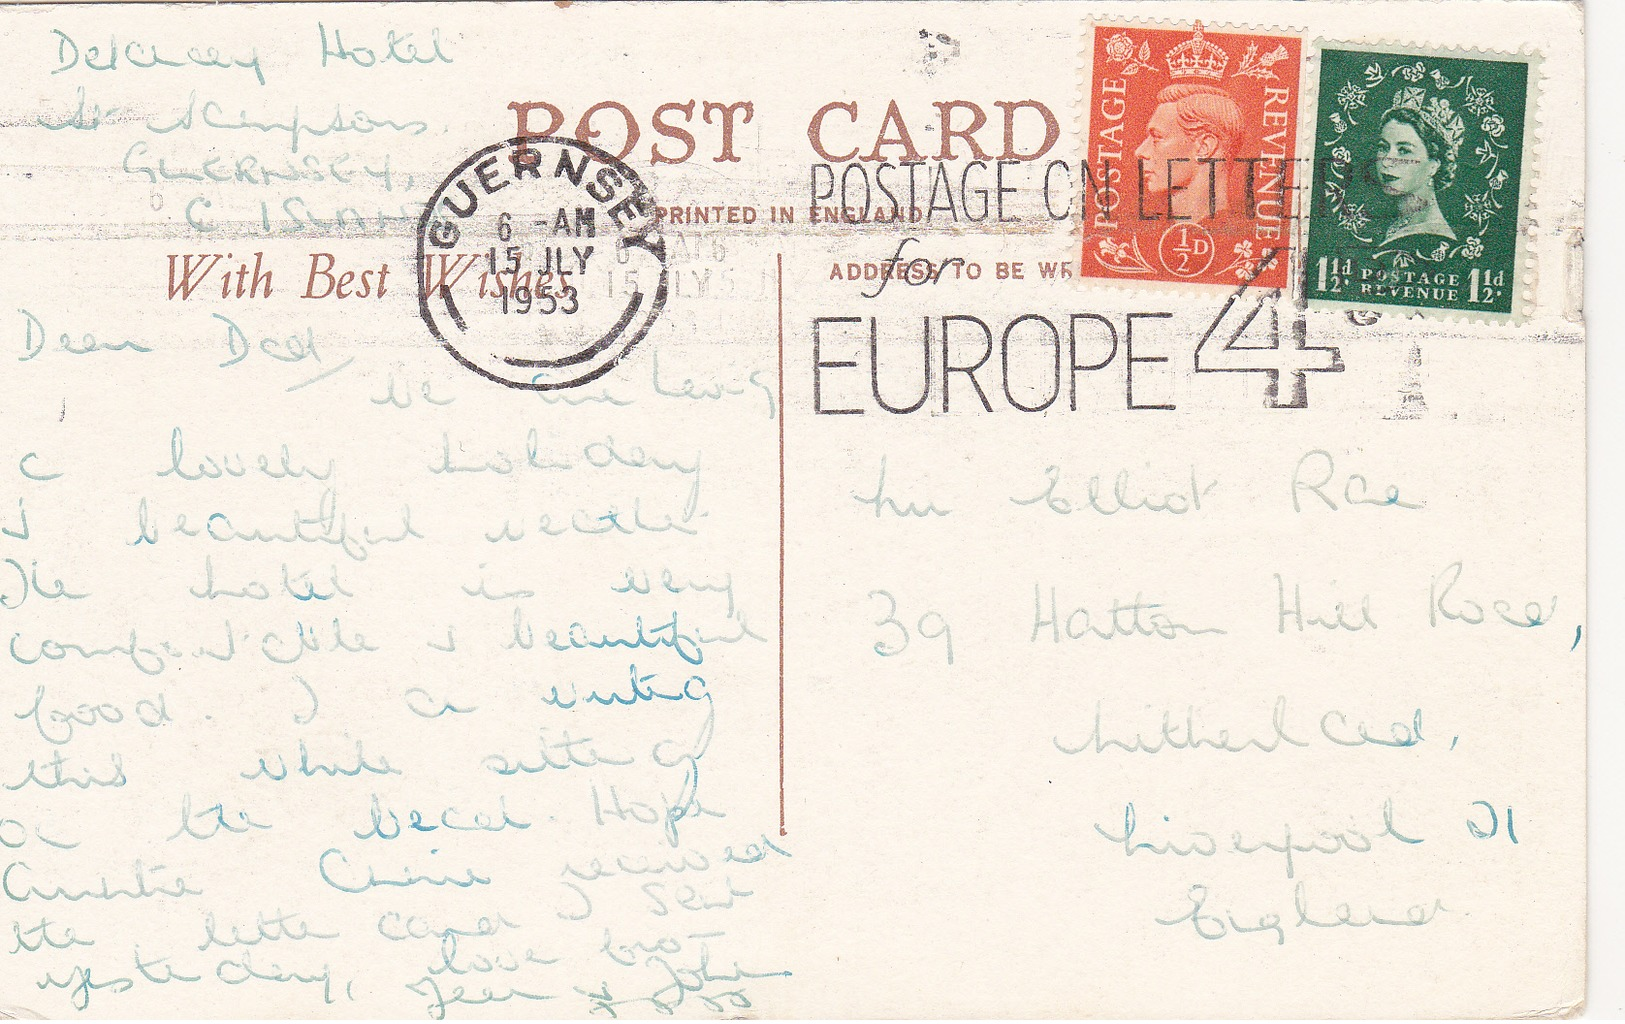 Hotel
St Sampsons
GUERNSEY,
C ISLAN
POST CARD
PRINTED IN ENGLAND
ADDRESS TO BE WR
With Best Wishes
GUERNSEY
6 -AM
15 JLY
1953
POSTAGE ON LETTERS
for
EUROPE 4
POSTAGE
REVENUE
½D
1½d. POSTAGE 1½d.
REVENUE
Dear Dad,
we are having
a lovely holiday
& beautiful weather
The hotel is very
comfortable & beautiful
food. I am writing
this while sitting
on the beach. Hope
Auntie received
the letter card I sent
yesterday, love from
Jean & John
Mr Elliot Rae
39 Hatton Hill Road,
Litherland,
Liverpool 21
England